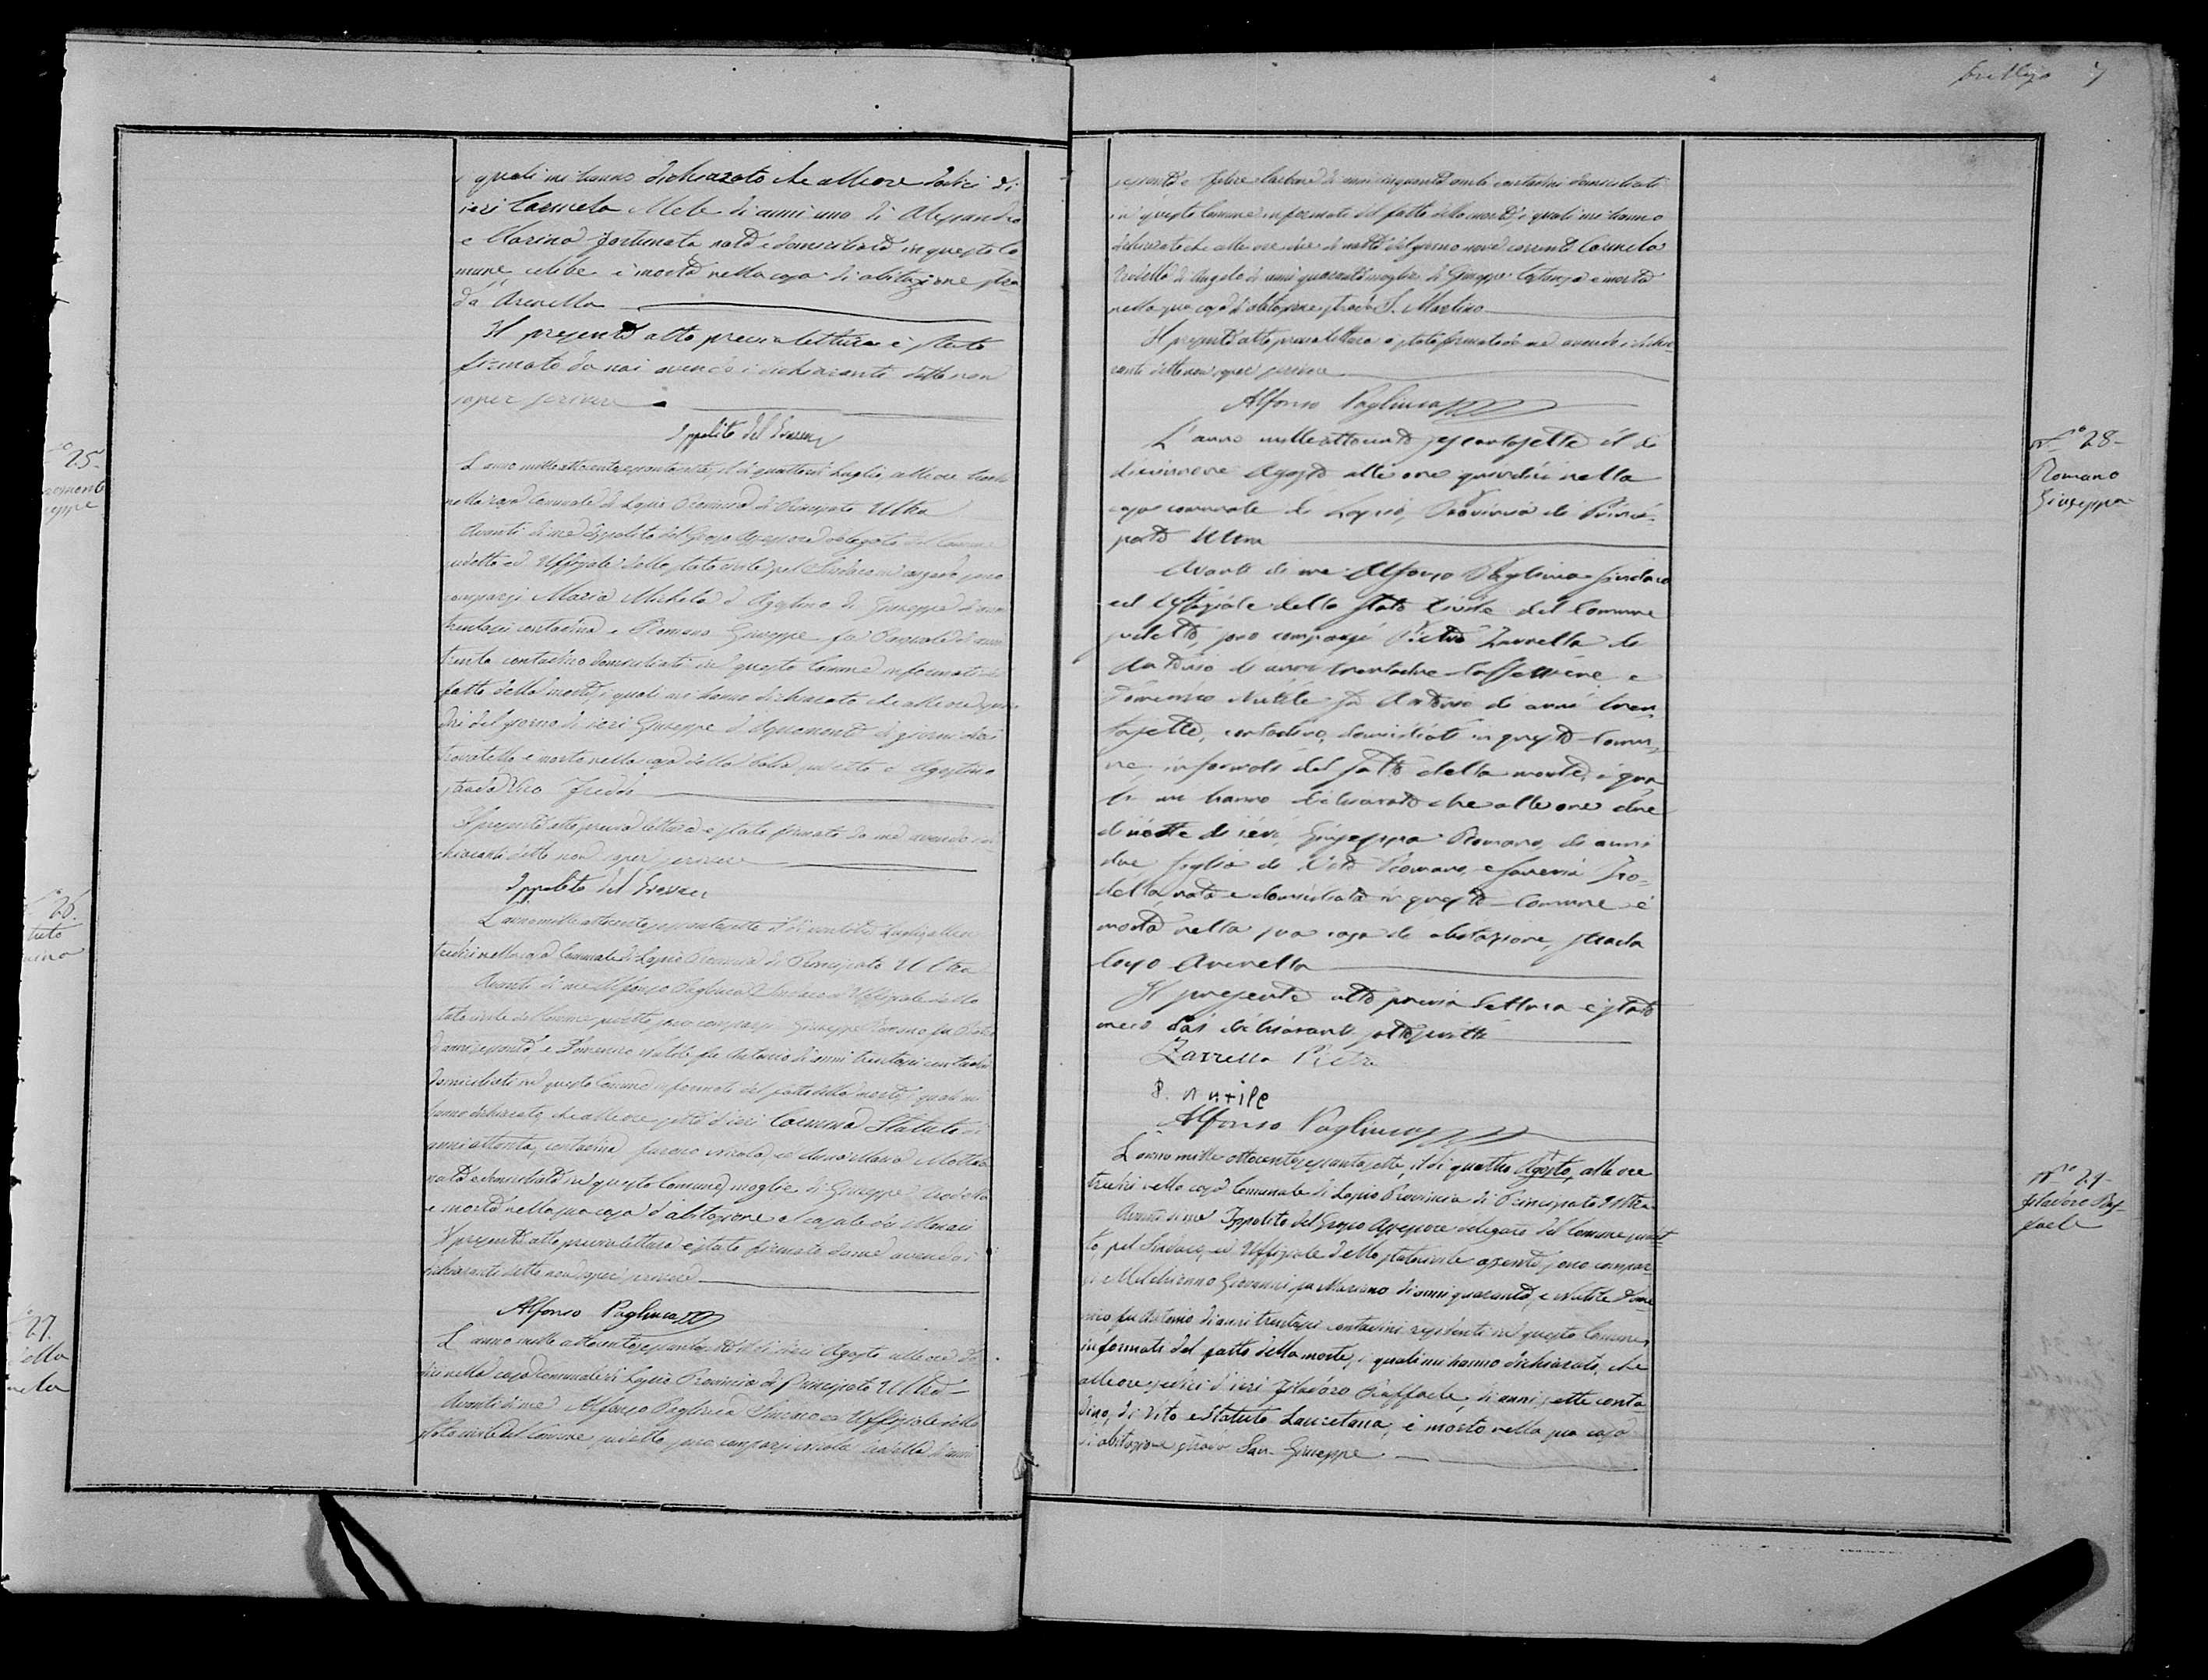 i quali mi hanno dichiarato che alle ore dodici di
ieri Carmela Mele di anni uno di Alessandro
e Marino Fortunata nata e domiciliata in questo Co
mune celibe è morta nella casa di abitazione stra
da Arenella
Il presente atto previa lettura è stato
firmato da noi avendo i dichiaranti detto non
saper scrivere
Ippolito del Grosso
25
L'anno mille ottocento sessantasette, il dì quattordici Luglio, alle ore
nella casa Comunale di Lapio Provincia di Principato Ultra
Avanti di me Ippolito del Grosso Assessore delegato del Comune
sudetto ed Uffiziale dello stato civile pel Sindaco in congedo sono
comparsi Maria Michela d'Agostino di Giuseppe d'anni
trentasei contadina e Romano Giuseppe fu Pasquale di anni
trenta contadino domiciliati in questo Comune informati del
fatto della morte, i quali mi hanno dichiarato che alle ore
dici del giorno di ieri Giuseppe d'Aquamonte di giorni dieci
trovatello è morto nella casa della balia sudetta d'Agostino
strada Vico Freddo
Il presente atto previa lettura è stato firmato da me avendo i di
chiaranti detto non saper scrivere
Ippolito del Grosso
26.
L'anno mille ottocento sessantasette il dì ventidue Luglio alle ore
tredici nella casa Comunale di Lapio Provincia di Principato Ultra
Avanti di me Alfonso Pagliuca Sindaco ed Uffiziale dello
stato civile del Comune sudetto sono comparsi Giuseppe Romano fu
di anni sessanta, e Domenico Nutile fu Antonio di anni trentasei contadini
domiciliati in questo Comune informati del fatto della morte, i quali mi
hanno dichiarato, che alle ore sette d'ieri Carmina Statuto di
anni ottanta, contadina furono Nicola, ed Anna Maria
nata e domiciliata in questo Comune, moglie di Giuseppe
è morta nella sua casa d'abitazione al casale dei Monaci
Il presente atto previa lettura è stato firmato da me avendo i
dichiaranti detto non saper scrivere
Alfonso Pagliuca
27.
L'anno mille ottocento sessantasette il dì dieci Agosto alle ore
dici nella casa comunale di Lapio Provincia di Principato Ultra
Avanti di me Alfonso Pagliuca Sindaco ed Uffiziale dello
stato civile del Comune sudetto sono comparsi Nicola d'anni
7
sessanta e Felice Carbone di anni cinquanta ambi contadini domiciliati
in questo Comune informati del fatto della morte, i quali mi hanno
dichiarato che alle ore due di notte del giorno nove corrente Carmela
di Angelo di anni quaranta moglie di Giuseppe è morta
nella sua casa d'abitazione strada S. Martino
Il presente atto previa lettura è stato firmato da me avendo i dichia
ranti detto non saper scrivere
Alfonso Pagliuca
N.° 28
Romano
Giuseppa
L'anno mille ottocento sessantasette il dì
diciannove Agosto alle ore quindici nella
casa comunale di Lapio, Provincia di Princi
pato Ultra
Avanti di me Alfonso Pagliuca Sindaco
ed Uffiziale dello stato Civile del Comune
sudetto, sono comparsi Pietro Zarrella di
Antonio di anni trentadue taffettiere e
Domenico Nutile fu Antonio di anni tren
tasette, contadino, domiciliati in questo Comu
ne, informati del fatto della morte, i qua
li mi hanno dichiarato che alle ore due
di notte di ieri, Giuseppa Romano, di anni
due figlia di Vito Romano, e Saveria
della, nata e domiciliata in questo Comune è
morta nella sua casa di abitazione, strada
Capo Arenella
Il presente atto previa lettura è stato
meco dai dichiaranti sottoscritto
Zarrella Pietro
D. nutile
Alfonso Pagliuca
N.° 29
Raf
faele
L'anno mille ottocento sessantasette, il dì quattro Agosto, alle ore
tredici nella casa Comunale di Lapio Provincia di Principato Ultra
Avanti di me Ippolito del Grosso Assessore delegato del Comune sudet
to pel Sindaco, ed Uffiziale dello stato civile assente, sono compar
si Melchionno Giovanni fu Mariano di anni quaranta, e Nutile Dome
nico fu Antonio di anni trentasei contadini residenti in questo Comune,
informati del fatto della morte, i quali mi hanno dichiarato, che
alle ore sedici d'ieri Raffaele, di anni sette conta
dino, di Vito e Statuto Lauretana, è morto nella sua casa
di abitazione strada San Giuseppe